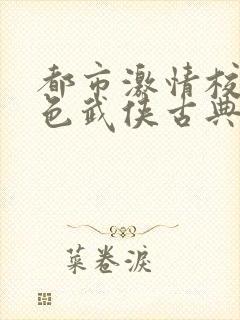 都市激情校
色武侠古典
菜卷淚